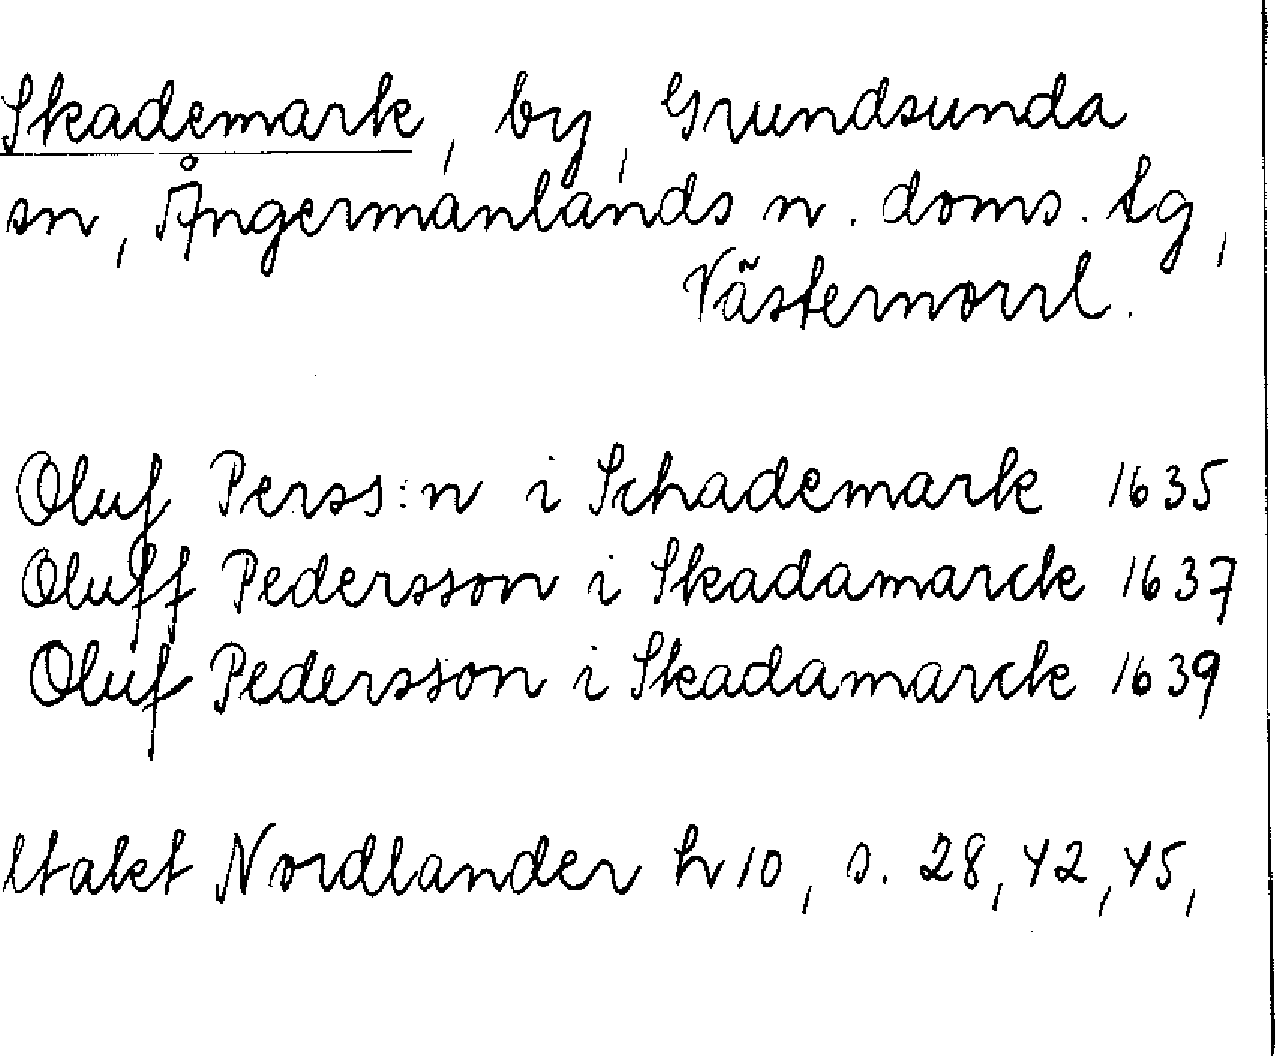 Skademark, by, Grundsunda
sn, Ångermanlands n. doms. tg,
Västernorrl.
Oluf Perss:n i Schademark 1635
Oluff Pedersson i Skadamarck 1637
Oluf Pedersson i Skadamarck 1639
Utakt Nordlander h 10, s. 28, 42, 45,